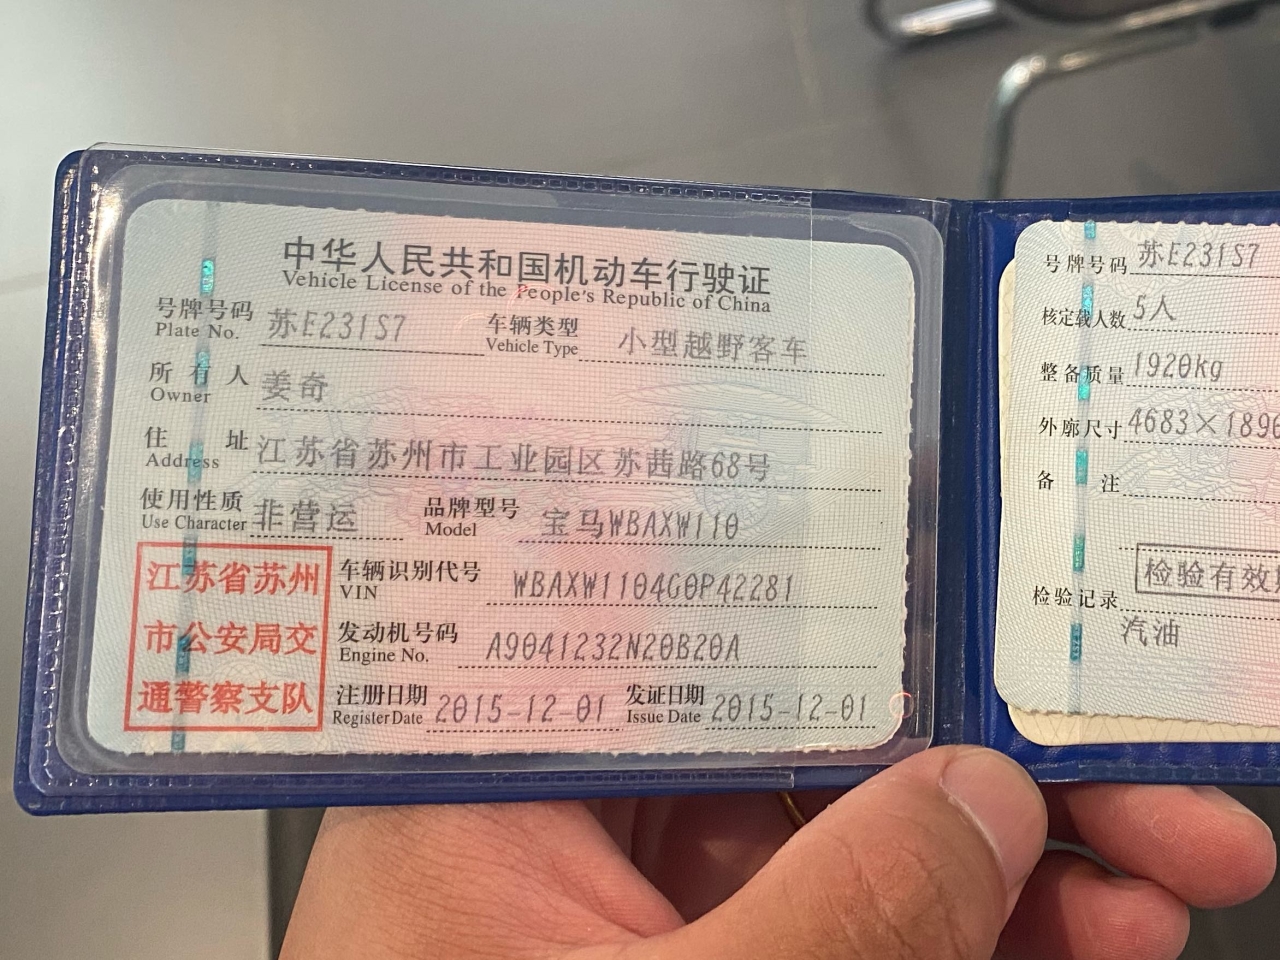 中华人民共和国机动车行驶证
Vehicle License of the People's Republic of China
号牌号码 苏E231S7 车辆类型 小型越野客车
Plate No. Vehicle Type
所有人 姜奇
Owner
住址 江苏省苏州市工业园区苏茜路68号
Address
使用性质 非营运 品牌型号 宝马WBAXW110
Use Character Model
江苏省苏州
市公安局交
通警察支队
车辆识别代号 WBAXW1104G0P42281
VIN
发动机号码 A9041232N20B20A
Engine No.
注册日期 2015-12-01 发证日期 2015-12-01
Register Date Issue Date
号牌号码 苏E231S7
核定载人数 5人
整备质量 1920kg
外廓尺寸 4683×1896
备注
检验有效
检验记录
汽油